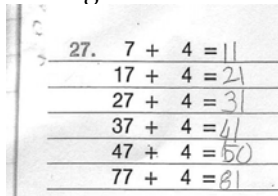 27. 7 + 4 = 11
17 + 4 = 21
27 + 4 = 31
37 + 4 = 41
47 + 4 = 50
77 + 4 = 81